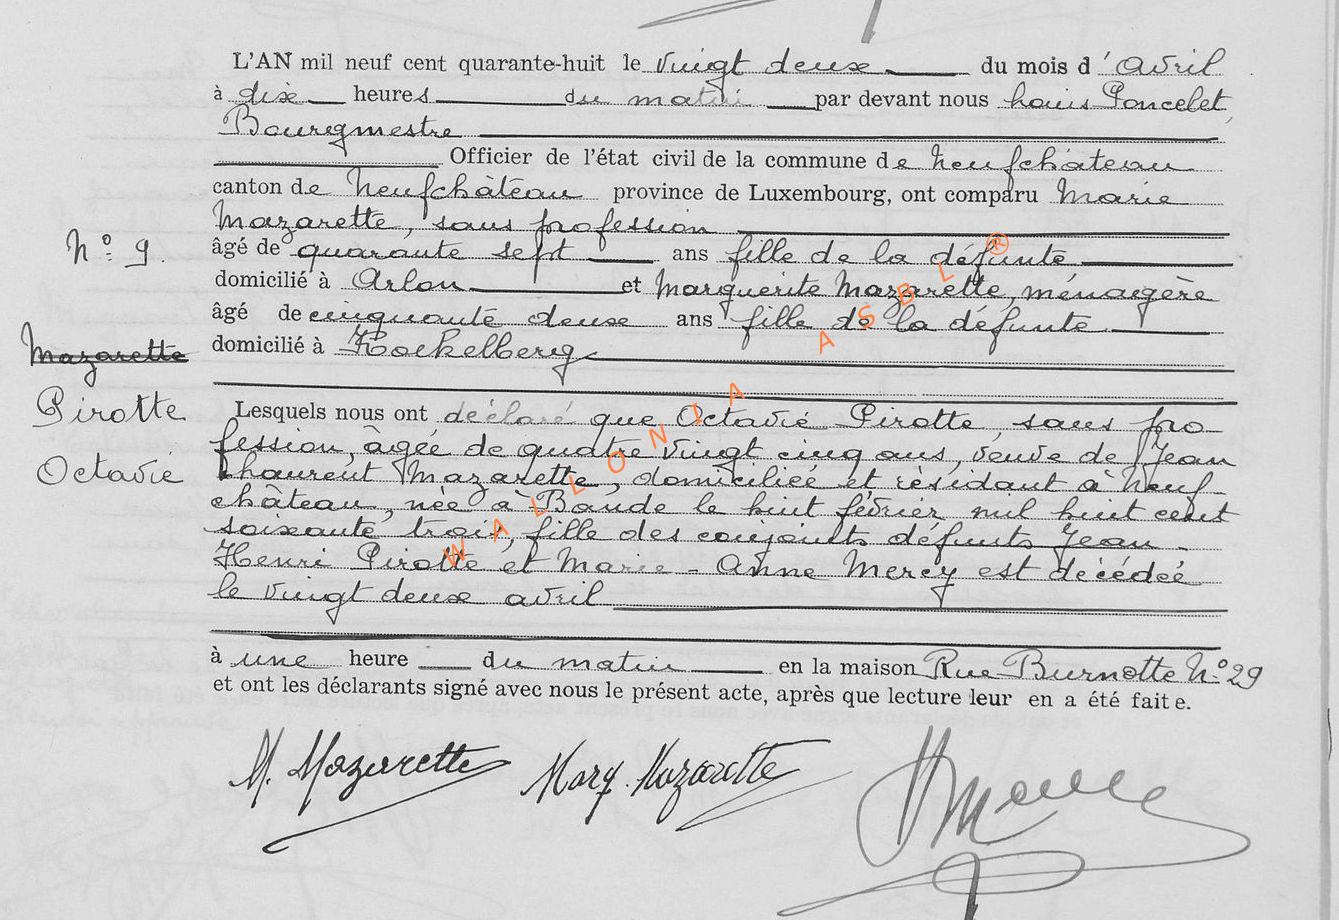 L'AN mil neuf cent quarante-huit le vingt deux du mois d'avril
à dix heures du matin par devant nous Louis Poncelet,
Bourgmestre
Officier de l'état civil de la commune de Neufchâteau
canton de Neufchâteau province de Luxembourg, ont comparu Marie
Mazarette, sans profession
N° 9.
âgé de quarante sept ans fille de la défunte
domicilié à Arlon et Marguerite Mazarette, ménagère
âgé de cinquante deux ans fille de la défunte
domicilié à Koekelberg
Mazarette
Pirotte
Octavie
Lesquels nous ont déclaré que Octavie Pirotte, sans pro-
fession, âgée de quatre vingt cinq ans, veuve de Jean
Laurent Mazarette, domiciliée et résidant à Neuf-
château, née à Bande le huit février mil huit cent
soixante trois, fille des conjoints défunts Jean-
Henri Pirotte et Marie-Anne Mercy est décédée
le vingt deux avril
à une heure du matin en la maison Rue Burnotte N° 29
et ont les déclarants signé avec nous le présent acte, après que lecture leur en a été faite.
M. Mazarette Marg. Mazarette
WALLONIA ASBL ®